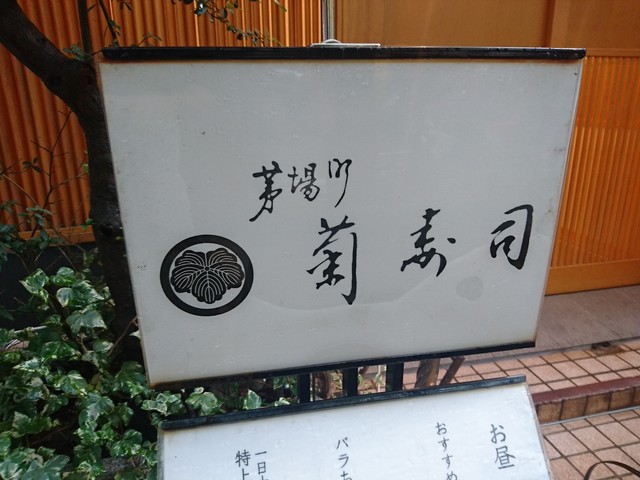 茅場町
菊寿司
お昼
おすすめ
バラち
一日
特上